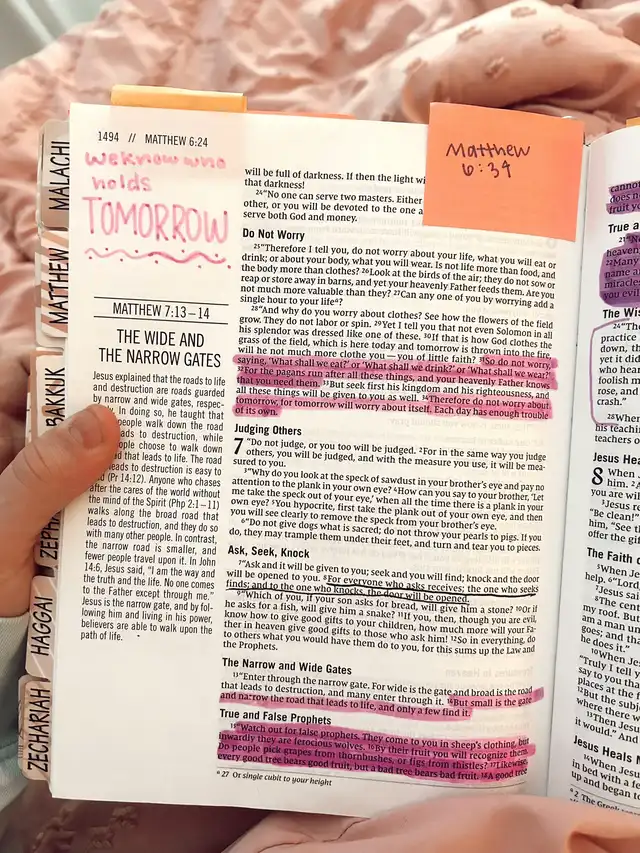 1494 // MATTHEW 6:24
we know who
holds
TOMORROW
MATTHEW 7:13–14
THE WIDE AND
THE NARROW GATES
Jesus explained that the roads to life
and destruction are roads guarded
by narrow and wide gates, respec-
In doing so, he taught that
people walk down the road
leads to destruction, while
people choose to walk down
that leads to life. The road
leads to destruction is easy to
(Pr 14:12). Anyone who chases
after the cares of the world without
the mind of the Spirit (Php 2:1–11)
walks along the broad road that
leads to destruction, and they do so
with many other people. In contrast,
the narrow road is smaller, and
fewer people travel upon it. In John
14:6, Jesus said, "I am the way and
the truth and the life. No one comes
to the Father except through me."
Jesus is the narrow gate, and by fol-
lowing him and living in his power,
believers are able to walk upon the
path of life.
will be full of darkness. If then the light wi
that darkness!
24"No one can serve two masters. Either
other, or you will be devoted to the one a
serve both God and money.
Do Not Worry
25"Therefore I tell you, do not worry about your life, what you will eat or
drink; or about your body, what you will wear. Is not life more than food, and
the body more than clothes? 26Look at the birds of the air; they do not sow or
reap or store away in barns, and yet your heavenly Father feeds them. Are you
not much more valuable than they? 27Can any one of you by worrying add a
single hour to your lifeᵃ?
28"And why do you worry about clothes? See how the flowers of the field
grow. They do not labor or spin. 29Yet I tell you that not even Solomon in all
his splendor was dressed like one of these. 30If that is how God clothes the
grass of the field, which is here today and tomorrow is thrown into the fire,
will he not much more clothe you—you of little faith? 31So do not worry,
saying, 'What shall we eat?' or 'What shall we drink?' or 'What shall we wear?'
32For the pagans run after all these things, and your heavenly Father knows
that you need them. 33But seek first his kingdom and his righteousness, and
all these things will be given to you as well. 34Therefore do not worry about
tomorrow, for tomorrow will worry about itself. Each day has enough trouble
of its own.
Judging Others
7 "Do not judge, or you too will be judged. 2For in the same way you judge
others, you will be judged, and with the measure you use, it will be mea-
sured to you.
3"Why do you look at the speck of sawdust in your brother's eye and pay no
attention to the plank in your own eye? 4How can you say to your brother, 'Let
me take the speck out of your eye,' when all the time there is a plank in your
own eye? 5You hypocrite, first take the plank out of your own eye, and then
you will see clearly to remove the speck from your brother's eye.
6"Do not give dogs what is sacred; do not throw your pearls to pigs. If you
do, they may trample them under their feet, and turn and tear you to pieces.
Ask, Seek, Knock
7"Ask and it will be given to you; seek and you will find; knock and the door
will be opened to you. 8For everyone who asks receives; the one who seeks
finds; and to the one who knocks, the door will be opened.
9"Which of you, if your son asks for bread, will give him a stone? 10Or if
he asks for a fish, will give him a snake? 11If you, then, though you are evil,
know how to give good gifts to your children, how much more will your Fa-
ther in heaven give good gifts to those who ask him! 12So in everything, do
to others what you would have them do to you, for this sums up the Law and
the Prophets.
The Narrow and Wide Gates
13"Enter through the narrow gate. For wide is the gate and broad is the road
that leads to destruction, and many enter through it. 14But small is the gate
and narrow the road that leads to life, and only a few find it.
True and False Prophets
15"Watch out for false prophets. They come to you in sheep's clothing, but
inwardly they are ferocious wolves. 16By their fruit you will recognize them.
Do people pick grapes from thornbushes, or figs from thistles? 17Likewise,
every good tree bears good fruit, but a bad tree bears bad fruit. 18A good tree
ᵃ 27 Or single cubit to your height
Matthew
6:34
MALACHI
MATTHEW
BAKKUK
ZEPH
HAGGAI
ZECHARIAH
cannot
does no
fruit yo
True a
21"N
heaven
22Many
name a
miracles
you evil
The Wis
24"Th
practice
down, th
yet it d
who hear
foolish m
rose, and
crash."
28When
his teachin
teachers o
Jesus Hea
8 When J
him. 2A
you are willi
3Jesus re
"Be clean!"
him, "See th
offer the gif
The Faith o
5When Je
help. 6"Lord,
7Jesus sai
8The cent
my roof. But
am a man u
goes; and th
he does it."
10When Je
"Truly I tell y
say to you tha
places at the f
12But the subj
where there wi
13Then Jesu
would." And
Jesus Heals M
14When Jesu
in bed with a fe
up and began to
ᵃ 2 The Greek